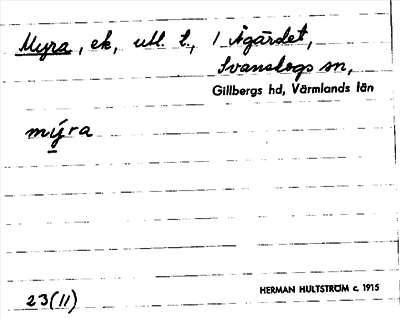 Myra, ek, utl. t., / Ågärdet,
Svanskogs sn,
Gillbergs hd, Värmlands län
mýra
23 (11)
HERMAN HULTSTRÖM c. 1915